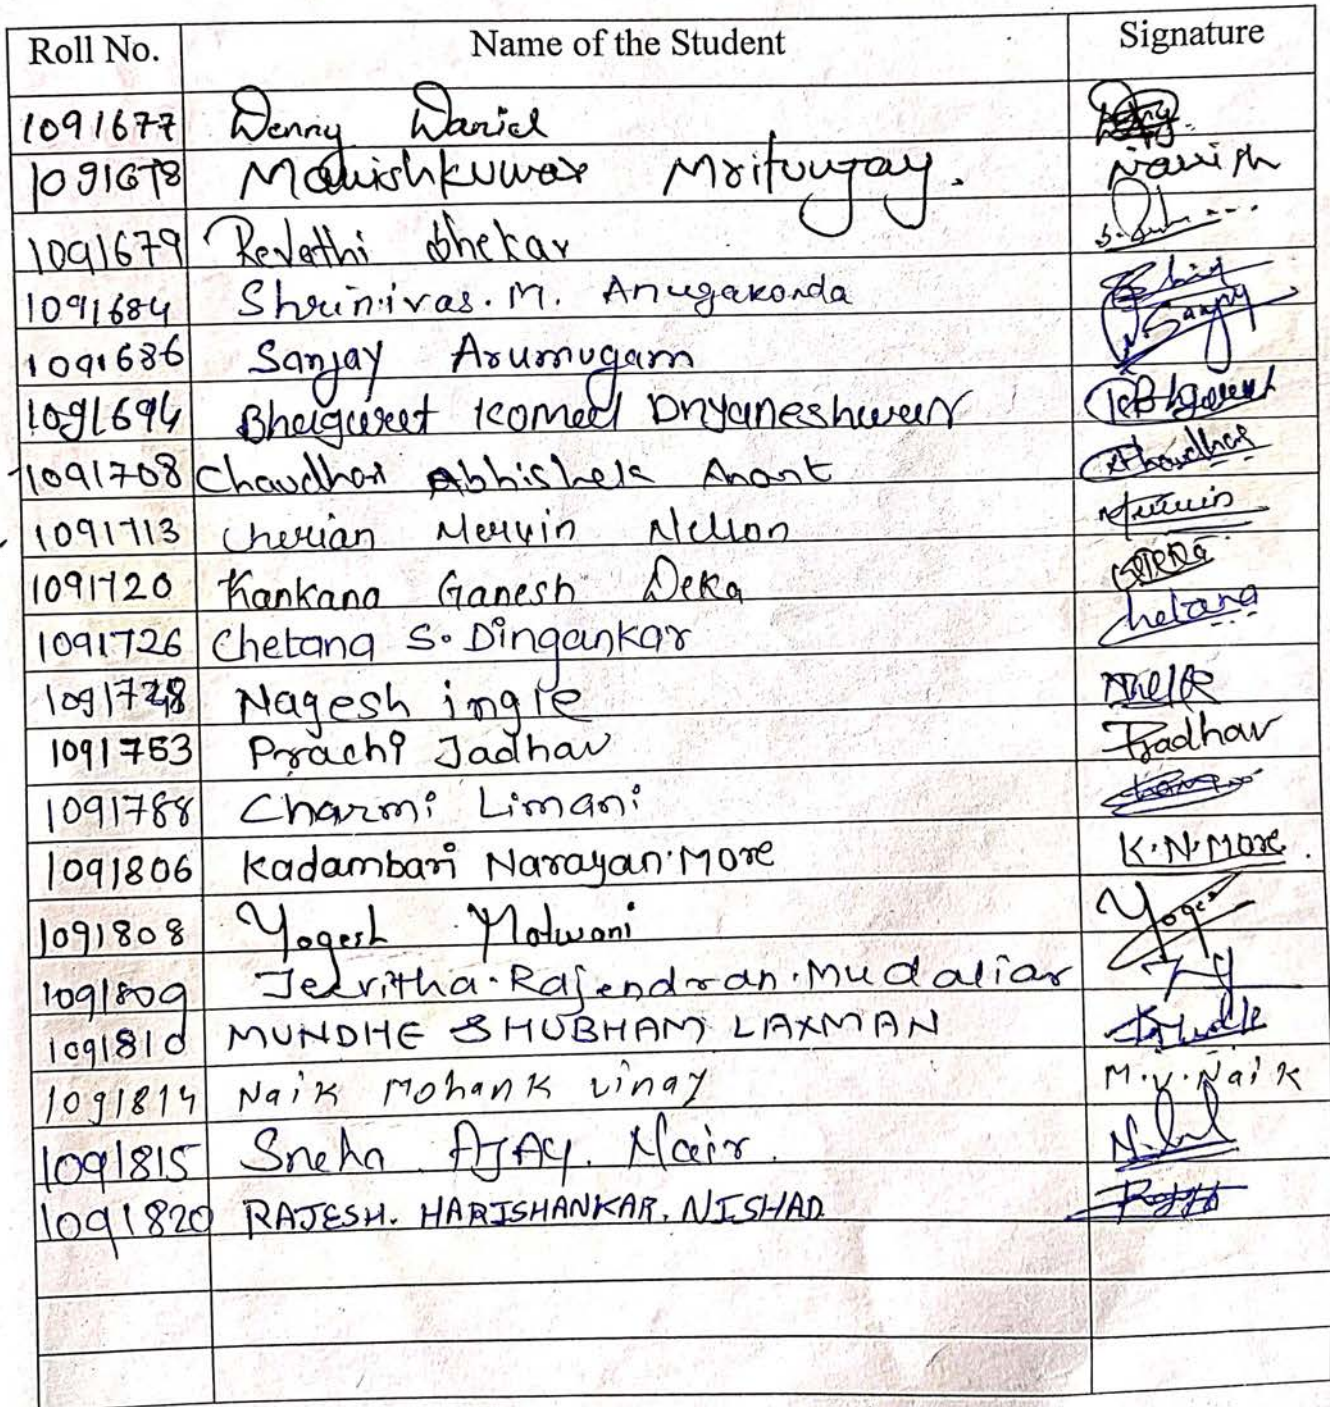 Roll No. Name of the Student Signature
1091677 Denny Daniel
1091678 Manishkumar Mritunjay. Manish
1091679 Revathi Shekar
1091684 Shrinivas. M. Anugakonda
1091686 Sanjay Arumugam Sanjay
1091694 Bhagwat Komal Dnyaneshwar KBhagwat
1091708 Chaudhari Abhishek Anant AChaudhari
1091713 Cherian Mervin Nelson Mervin
1091720 Kankana Ganesh Deka
1091726 Chetana S. Dingankar Chetana
1091728 Nagesh ingle
1091753 Prachi Jadhav PJadhav
1091788 Charmi Limani
1091806 Kadambari Narayan. More K.N.More.
1091808 Yogesh Motwani Yogesh
1091809 Jervitha. Rajendran. Mudaliar
1091810 MUNDHE SHUBHAM LAXMAN
1091814 Naik Mohank Vinay M.V. Naik
1091815 Sneha AJAY. Nair.
1091820 RAJESH. HARISHANKAR. NISHAD.